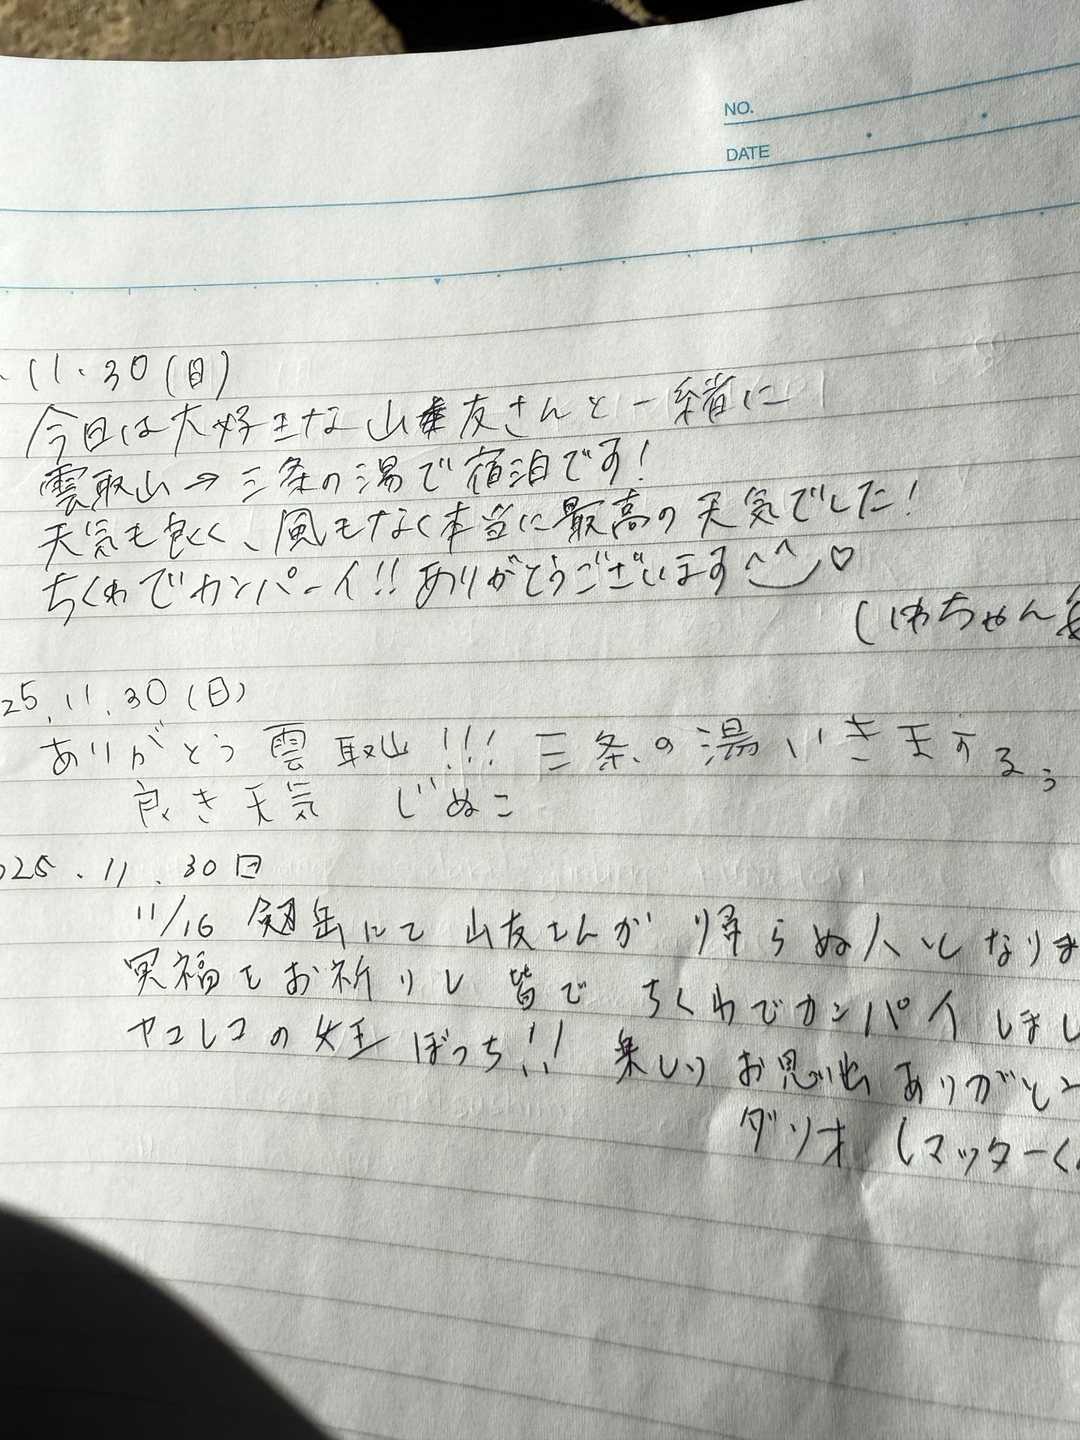 NO.
DATE
.11.30(日)
今日は大好きな山友さんと一緒に
雲取山→三条の湯で宿泊です!
天気も良く、風もなく本当に最高の天気でした!
ちくわでカンパーイ!!ありがとうございます^^♡
(ゆちゃん
25.11.30(日)
ありがとう雲取山!!!三条の湯いきまする、
良き天気 じぬこ
025.11.30日
11/16 剱岳にて山友さんが帰らぬ人となりま
冥福をお祈りし皆でちくわでカンパイしまし
ヤコレコの女王ぼっち!!楽しいお思い出ありがとう
ダリオ(マッターく